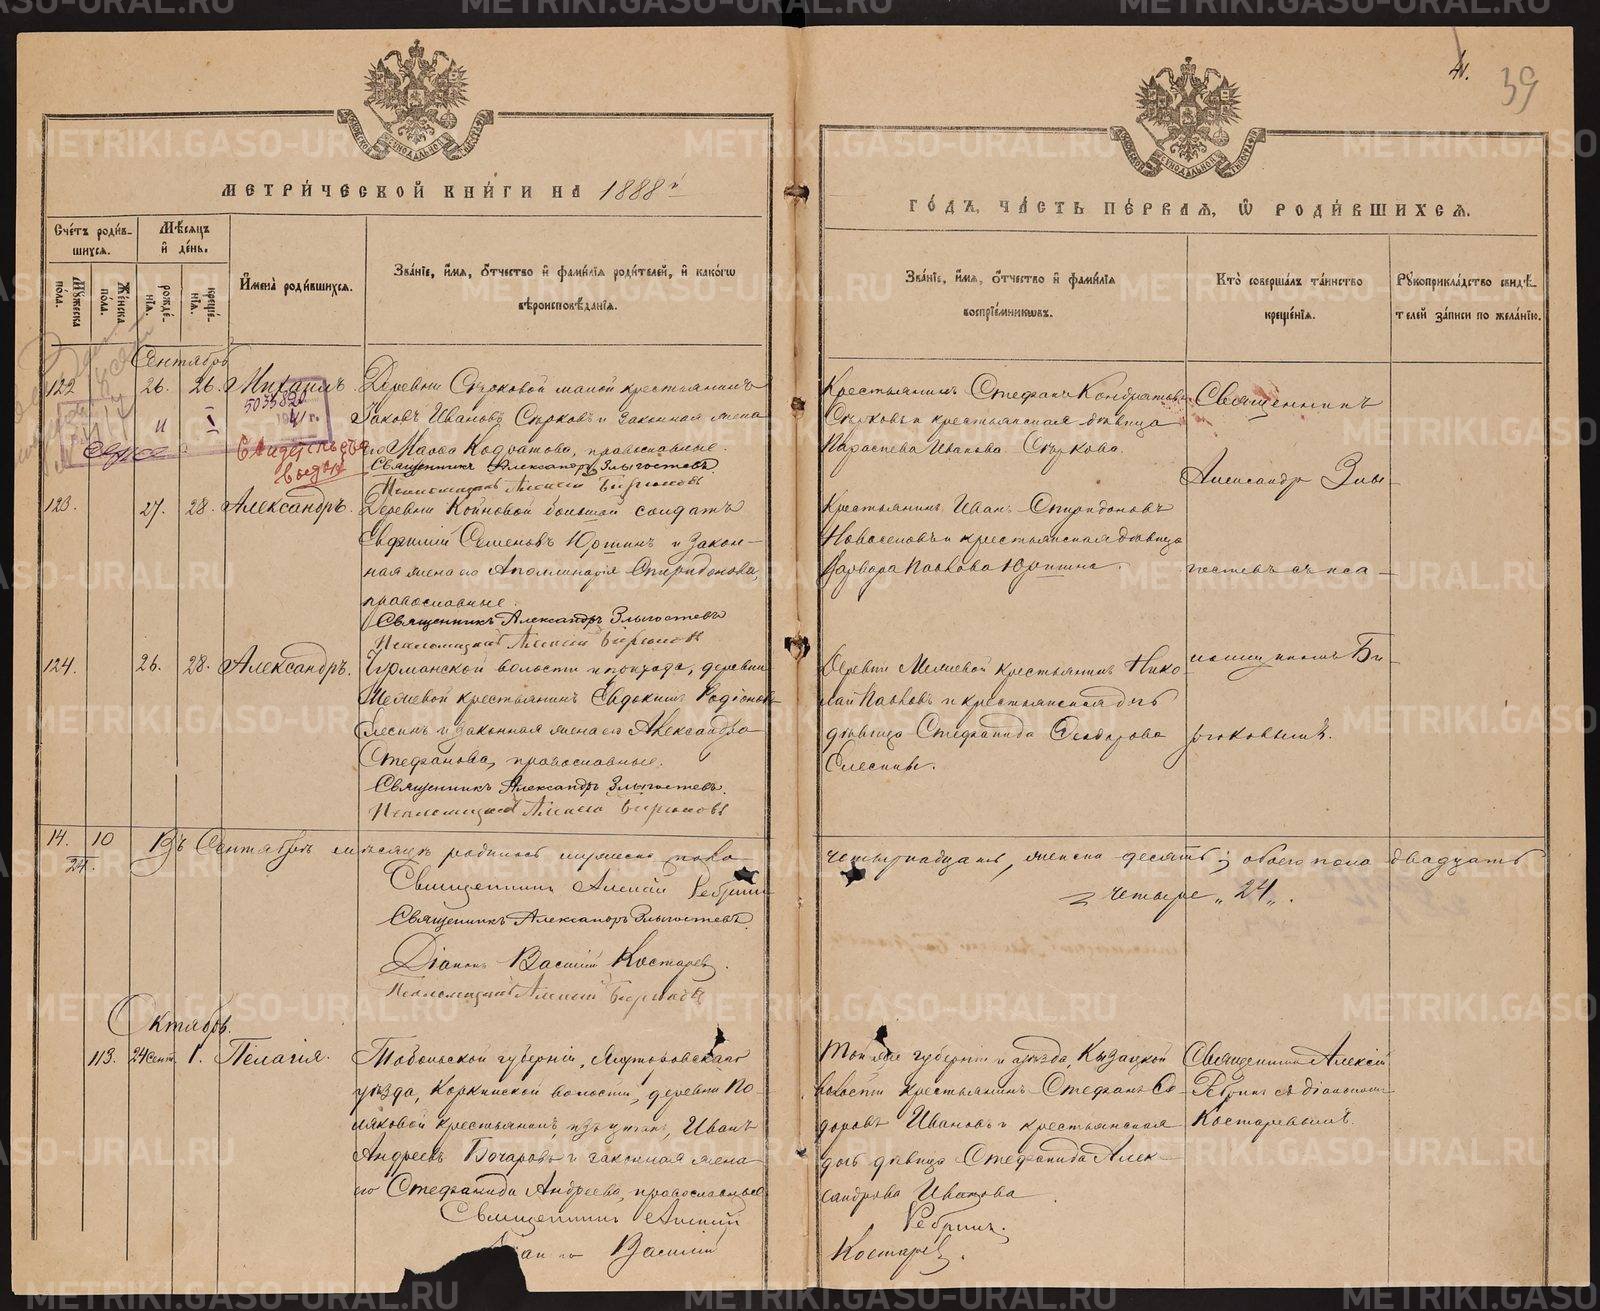 41.
39
МЕТРИ́ЧЕСКОЙ КНИ́ГИ НА 1888й
ГО́ДЪ, ЧА́СТЬ ПЕ́РВАЯ, Ѡ РОДИ́ВШИХСЯ.
Сче́тъ роди́в-
шихся.
Мѣ́сяцъ
и҆ де́нь.
Му́жеска
по́ла.
Же́нска
по́ла.
рожде́-
нїя.
креще́-
нїя.
И҆мена̀ роди́вшихся.
Зва́нїе, и҆́мя, ѻ҆́тчество и҆ фами́лїя роди́телей, и҆ како́гѡ
вѣроисповѣ́данїя.
Зва́нїе, и҆́мя, ѻ҆́тчество и҆ фами́лїя
воспрїе́мникѡвъ.
Кто̀ соверша́лъ та́инство
креще́нїя.
Рукоприкла́дство свидѣ́-
телей за́писи по жела́нїю.
Сентябрь
122 26. 26. Михаилъ.
Деревни Сырковой малой крестьянинъ
Іаковъ Ивановъ Сырковъ и законная жена
его Марѳа Кодратова, православные.
Священникъ Александръ Злыгостевъ
Псаломщикъ Алексій Бирюковъ
Крестьянинъ Стефанъ Кондратовъ
Сырковъ и крестьянская дѣвица
Параскева Иванова Сыркова.
Священникъ
Александръ Злы-
гостевъ съ пса-
ломщикомъ Би-
рюковымъ.
5035820
Свидѣтельство
выдано
123. 27. 28. Александръ.
Деревни Койновой большой солдатъ
Евфимій Семеновъ Юшинъ и закон-
ная жена его Аполлинарія Спиридонова,
православные.
Священникъ Александръ Злыгостевъ
Псаломщикъ Алексій Бирюковъ
Крестьянинъ Иванъ Спиридоновъ
Новоселовъ и крестьянская дѣвица
Варвара Павлова Юшина.
124. 26. 28. Александръ.
волости и прихода, деревни
крестьянинъ Евдокимъ Родіоновъ
Слесинъ и законная жена его Александра
Стефанова, православные.
Священникъ Александръ Злыгостевъ.
Псаломщикъ Алексій Бирюковъ
Деревни крестьянинъ Нико-
лай Павловъ и крестьянская дочь
дѣвица Стефанида Ѳеодорова
Слесины.
14. 10
24.
Въ Сентябрѣ мѣсяцѣ родилось мужеска пола
четырнадцать, женска десять; обоего пола двадцать
четыре „24„.
Священникъ Алексій Ребринъ
Священникъ Александръ Злыгостевъ.
Діаконъ Василій Костаревъ.
Псаломщикъ Алексій Бирюковъ
Октябрь.
113. 24 сент. 1. Пелагія.
Тобольской губерніи, Ялуторовскаго
уѣзда, Коркинской волости, деревни По-
ляковой крестьянинъ, изъ цыган, Иванъ
Андреевъ Бочаровъ и законная жена
его Стефанида Андреева, православные
Священникъ Алексій
Василій
Той же губерніи и уѣзда, Кызацкой
волости крестьянинъ Стефанъ Ѳе-
доровъ Ивановъ и крестьянская
дочь дѣвица Стефанида Алек-
сандрова Иванова.
Ребринъ.
Костаревъ.
Священникъ Алексій
Ребринъ съ діакономъ
Костаревымъ.
METRIKI.GASO-URAL.RU